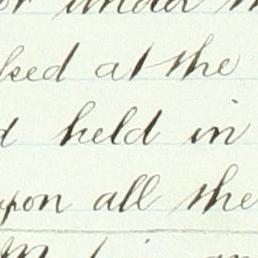 or under
ked at the
d held in
upon all the